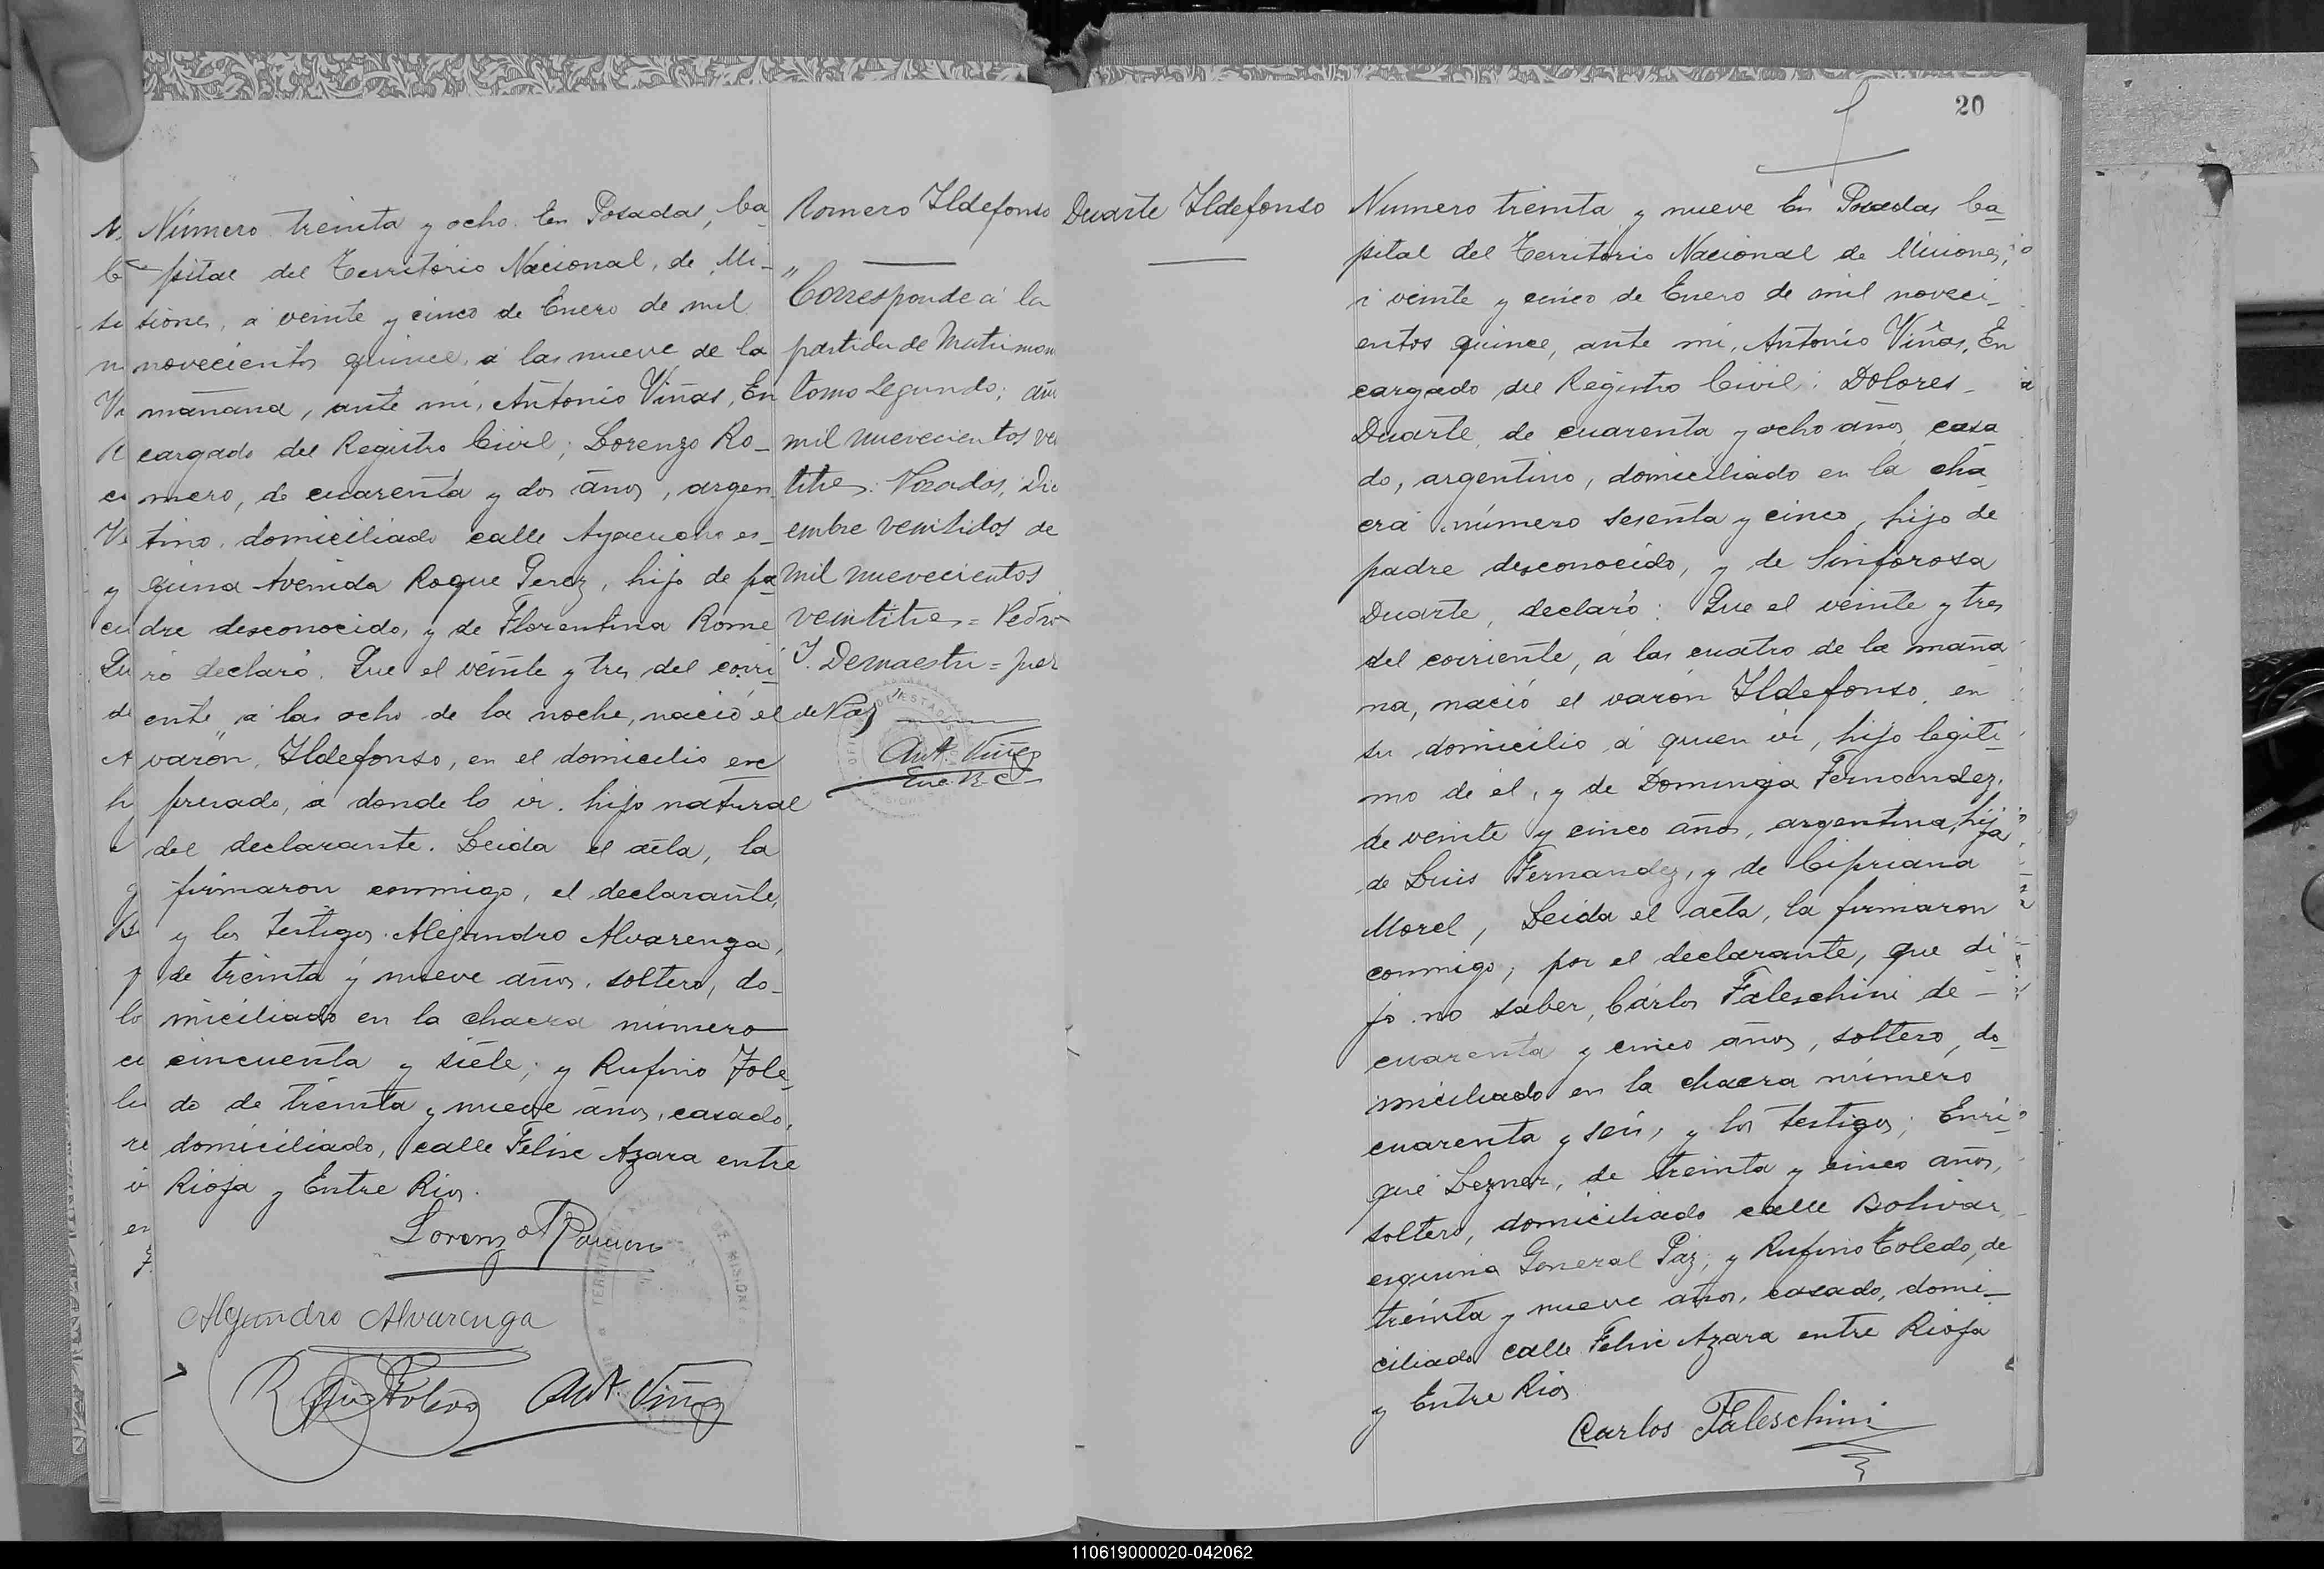 Número treinta y ocho. En Posadas, Ca-
pital del Territorio Nacional, de Mi-
siones, a veinte y cinco de Enero de mil
novecientos quince, a las nueve de la
mañana, ante mi, Antonio Viñas, En
cargado del Registro Civil; Lorenzo Ro-
mero, de cuarenta y dos años, argen-
tino, domiciliado calle Ayacucho es-
quina Avenida Roque Perez, hijo de pa
dre desconocido, y de Florentina Rome
ro declaró. Que el veinte y tres del corri-
ente a las ocho de la noche, nació el
varón, Ildefonso, en el domicilio ex
presado, a donde lo vi. hijo natural
del declarante. Leida el acta, la
firmaron conmigo, el declarante,
y los testigos Alejandro Alvarenga,
de treinta y nueve años, soltero, do-
miciliado en la chacra número
cincuenta y siete; y Rufino Tole-
do de treinta y nueve años, casado,
domiciliado, calle Felix Azara entre
Rioja y Entre Rios.
Lorenzo Romero
Alejandro Alvarenga
Rufino Toledo Ant. Viñas
Romero Ildefonso
"Corresponde a la
partida de Matrimon
tomo segundo; año
mil nuevecientos ve
titres: Posadas, Dic
embre veintidos de
mil nuevecientos
veintitres = Pedro
I. Demaestri = Juez
de Paz
Ant. Viñas
Enc. R. C.
20
Duarte Ildefonso
Numero treinta y nueve En Posadas Ca-
pital del Territorio Nacional de Misiones,
a veinte y cinco de Enero de mil noveci-
entos quince, ante mi, Antonio Viñas, En
cargado del Registro Civil: Dolores
Duarte, de cuarenta y ocho años, casa
do, argentino, domiciliado en la cha
cra número sesenta y cinco, hijo de
padre desconocido, y de Sinforosa
Duarte, declaró: Que el veinte y tres
del corriente, á las cuatro de la maña
na, nació el varón Ildefonso, en
su domicilio á quien vi, hijo legiti-
mo de él, y de Dominga Fernandez,
de veinte y cinco años, argentina, hija
de Luis Fernandez, y de Cipriana
Morel, Leida el acta, la firmaron
conmigo, por el declarante, que di
jo no saber, Cárlos Faleschini de
cuarenta y cinco años, soltero, do-
miciliado en la chacra número
cuarenta y seis, y los testigos; Enri-
que Lezner, de treinta y cinco años,
soltero, domiciliado calle Bolivar,
esquina General Paz, y Rufino Toledo, de
treinta y nueve años, casado, domi-
ciliado calle Felix Azara entre Rioja
y Entre Rios
Carlos Faleschini
110619000020-042062